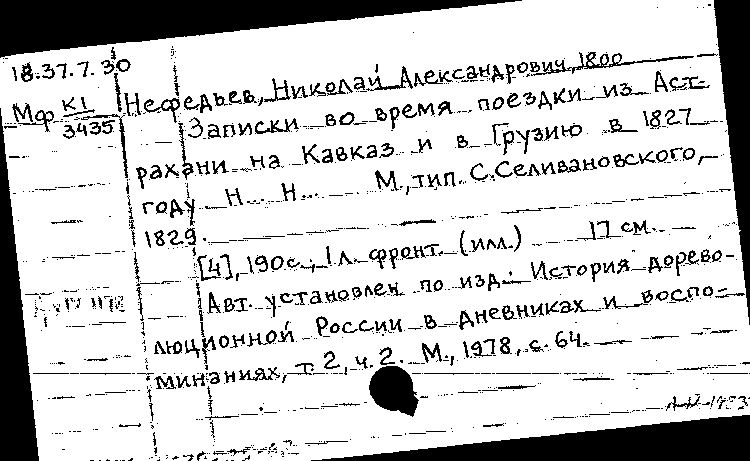 18.37.7.30
Мф К1/3435
Нефедьев, Николай Александрович, 1800
Записки во время поездки из Аст-
рахани на Кавказ и в Грузию в 1827
году Н... Н... М., тип. С. Селивановского,
1829.
[4], 190 с.; 1 л. фронт. (илл.) 17 см.
Авт. установлен по изд.: История дорево-
люционной России в дневниках и воспо-
минаниях, т. 2, ч. 2. М., 1978, с. 64.